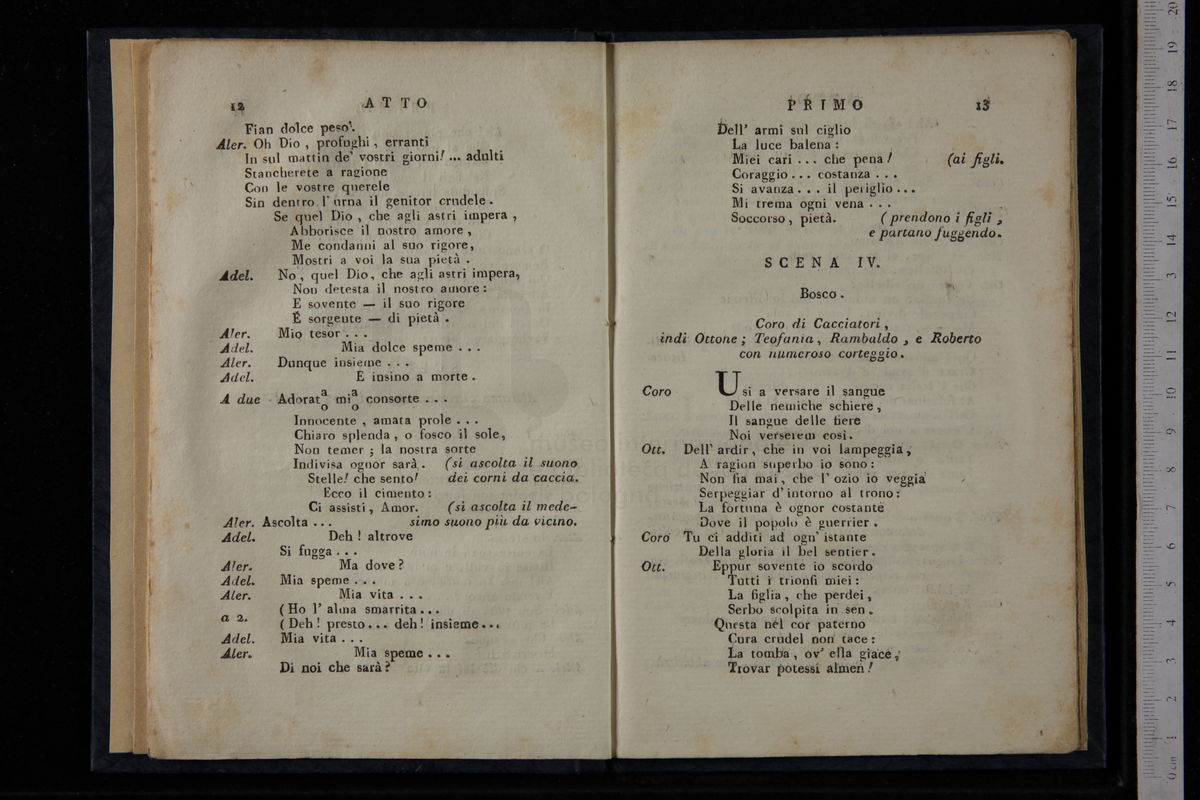 12 ATTO
Fian dolce peso'.
Aler. Oh Dio , profughi , erranti
In sul mattin de' vostri giorni! ... adulti
Stancherete a ragione
Con le vostre querele
Sin dentro l'urna il genitor crudele .
Se quel Dio , che agli astri impera ,
Abborisce il nostro amore ,
Me condanni al suo rigore,
Mostri a voi la sua pietà .
Adel. No , quel Dio, che agli astri impera,
Non detesta il nostro amore :
E sovente — il suo rigore
É sorgente — di pietà .
Aler. Mio tesor . . .
Adel. Mia dolce speme . . .
Aler. Dunque insieme . . .
Adel. E insino a morte .
A due Adorat a/o mi a/o consorte . . .
Innocente , amata prole . . .
Chiaro splenda , o fosco il sole,
Non temer ; la nostra sorte
Indivisa ognor sarà . (si ascolta il suono
Stelle! che sento! dei corni da caccia.
Ecco il cimento :
Ci assisti , Amor. (si ascolta il mede-
Aler. Ascolta . . . simo suono più da vicino.
Adel. Deh ! altrove
Si fugga . . .
Aler. Ma dove ?
Adel. Mia speme . . .
Aler. Mia vita . . .
a 2. (Ho l' alma smarrita . . .
(Deh ! presto . . . deh ! insieme . . .
Adel. Mia vita . . .
Aler. Mia speme . . .
Di noi che sarà ?
PRIMO 13
Dell' armi sul ciglio
La luce balena :
Miei cari . . . che pena ! (ai figli.
Coraggio . . . costanza . . .
Si avanza . . . il periglio . . .
Mi trema ogni vena . . .
Soccorso , pietà. (prendono i figli ,
e partano fuggendo.
SCENA IV.
Bosco .
Coro di Cacciatori ,
indi Ottone ; Teofania , Rambaldo , e Roberto
con numeroso corteggio .
Coro Usi a versare il sangue
Delle nemiche schiere ,
Il sangue delle fiere
Noi verserem così.
Ott. Dell' ardir , che in voi lampeggia ,
A ragion superbo io sono :
Non fia mai , che l' ozio io veggia
Serpeggiar d' intorno al trono :
La fortuna è ognor costante
Dove il popolo è guerrier .
Coro Tu ci additi ad ogn' istante
Della gloria il bel sentier .
Ott. Eppur sovente io scordo
Tutti i trionfi miei :
La figlia , che perdei ,
Serbo scolpita in sen .
Questa nel cor paterno
Cura crudel non tace :
La tomba , ov' ella giace ,
Trovar potessi almen !